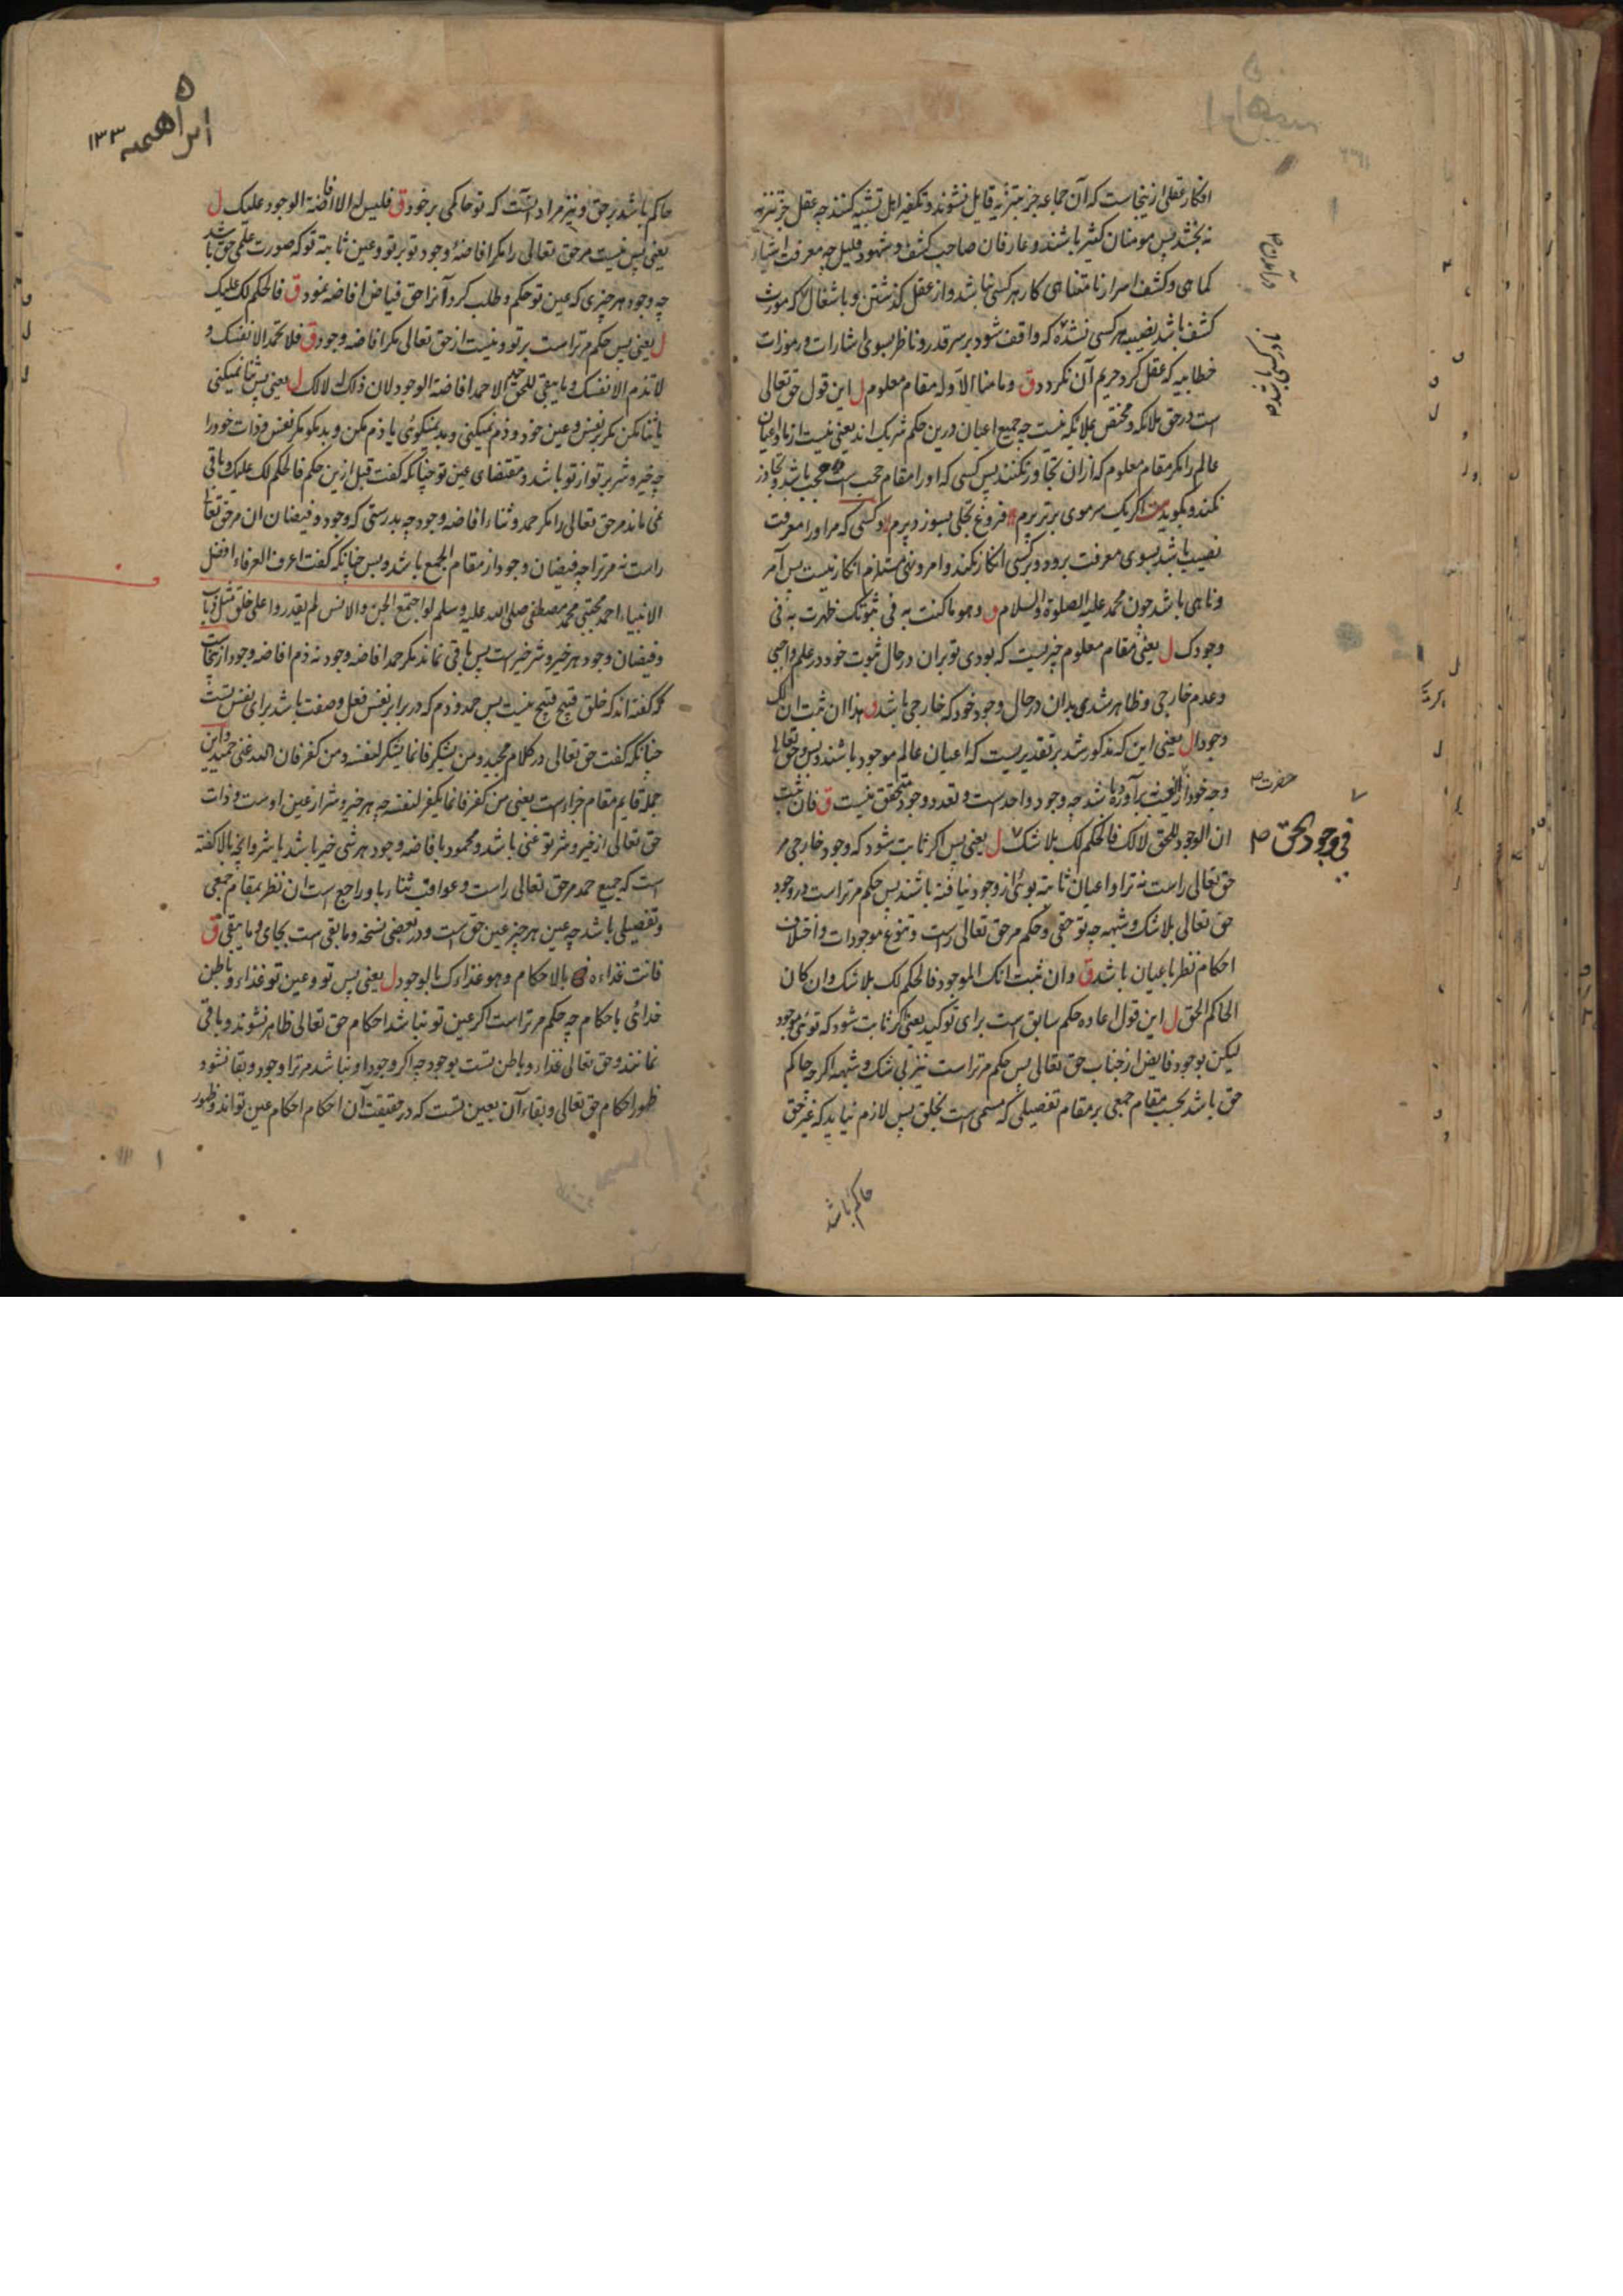 افکار عقلی ازینجاست که آن جماعه جز بتنزیه قایل نشوند و تکفیر اهل تشبیه کنند چه عقل جز تنزیه
نه بخشد پس مومنان کثیر باشند و عارفان صاحب کشف و شهود قلیل چه معرفت اشیاء
کماهی و کشف اسرار نامتناهی کار هر کسی نباشد و از عقل گذشتن و باشغال که مورث
کشف باشد نصیبه هر کسی نشده که واقف شود بر سر قدر و ناظر بسوی اشارات و رموزات
خطابیه که عقل گرد حریم آن نگردد ق وما منا الا وله مقام معلوم ل این قول حق تعالی
است در حق ملائکه و مختص بملائکه نیست چه جمیع اعیان درین حکم شریک اند یعنی نیست از ما و اعیان
عالم را مگر مقام معلوم که ازان تجاوز نکنند پس کسی که او را مقام حجب است محجب باشد و تجاوز
نکند و بگوید بیت اگر یک سر موی برتر پرم فروغ تجلی بسوزد پرم و کسی که مر او را معرفت
نصیب باشد بسوی معرفت برود و بر کسی انکار نکند و امر و نهی مستلزم انکار نیست پس آمر
و ناهی باشد چون محمد علیه الصلوة والسلام ق وهو ما کنت به فی ثبوتک ظهرت به فی
وجودک ل یعنی مقام معلوم چیزیست که بودی تو بران در حال ثبوت خود در علم واجبی
و عدم خارجی و ظاهر شدی بدان در حال وجود خود که خارجی باشد ق هذا ان ثبت ان لک
وجودا ل یعنی این که مذکور شد بر تقدیریست که اعیان عالم موجود باشند و پس و حق تعالی
وجه خود از لعینیه برآورده باشد چه وجود واحد است و تعدد وجود متحقق نیست ق فان ثبت
ان الوجود للحق لا لک فالحکم لک بلا شک ل یعنی پس اگر ثابت شود که وجود خارجی مر
فی وجود الحق
حق تعالی راست نه ترا و اعیان ثابته بوئی از وجود نیافته باشند پس حکم مر تراست در وجود
حق تعالی بلا شک و شبهه چه تو حقی و حکم مر حق تعالی راست و تنوع موجودات و اختلاف
احکام نظر باعیان باشد ق وان ثبت انک الموجود فالحکم لک بلا شک وان کان
الحاکم الحق ل این قول اعاده حکم سابق است برای توکید یعنی اگر ثابت شود که توئی موجود
لیکن بوجود فایض از جناب حق تعالی پس حکم مر تراست نیز بی شک و شبهه اگرچه حاکم
حق باشد بحسب مقام جمعی بر مقام تفصیلی که مسمی است بخلق پس لازم نیاید که غیر حق
حاکم باشد
ابراهیمیه ۱۳۳
حاکم باشد بر حق و نیز مراد آنست که تو حاکمی بر خود ق فلیس له الا افاضة الوجود علیک ل
یعنی پس نیست مر حق تعالی را مگر افاضهٔ وجود تو بر تو و عین ثابته تو که صورت علمی حق باشد
چه وجود هر چیزی که عین تو حکم و طلب کرد آنرا حق فیاض افاضه نمود ق فالحکم لک علیک
ل یعنی پس حکم مر تراست بر تو و نیست از حق تعالی مگر افاضه وجود ق فلا تحمد الا نفسک و
لا تذم الا نفسک وما یبقی للحق الا حمد افاضة الوجود لان ذلک له لا لک ل یعنی پس ثنا نمیکنی
یا ثنا مکن مگر بر نفس و عین خود و ذم نمیکنی و بد نمیگوئی یا ذم مکن و بد مگو مگر نفس و ذات خود را
چه خیر و شر بر تو از تو باشد و مقتضای عین تو چنانکه گفت قبل ازین حکم فالحکم لک علیک و باقی
نمی ماند مر حق تعالی را مگر حمد و ثناء افاضه وجود چه بدرستی که وجود و فیضان آن مر حق تعالی
راست نه مر ترا چه فیضان وجود از مقام الجمع باشد و بس چنانکه گفت اعرف العرفاء افضل
الانبیاء احمد مجتبی محمد مصطفی صلی الله علیه وسلم لو اجتمع الجن والانس لم یقدروا علی خلق
و فیضان وجود هر خیر و شر خیر است پس باقی نماند مگر حمد افاضه وجود نه ذم افاضه وجود ازینجاست
که گفته اند که خلق قبیح قبیح نیست پس حمد و ذم که در برابر نفس فعل و صفت باشد برای نفس تست
چنانکه گفت حق تعالی در کلام مجید ومن یشکر فانما یشکر لنفسه ومن کفر فان الله غنی حمید و این
جمله قایم مقام جزاست یعنی من کفر فانما یکفر لنفسه چه هر خیر و شر از عین اوست و ذات
حق تعالی از خیر و شر تو غنی باشد و محمود بافاضه وجود هر شی خیر باشد یا شر و آنچه بالا گفته
است که جمیع حمد مر حق تعالی راست و عواقب ثناء باو راجع است آن نظر بمقام جمعی
و تفصیلی باشد چه عین هر چیز عین حق است و در بعضی نسخه وما بقی است بجای وما یبقی ق
فانت غذاءه بالاحکام وهو غذاءک بالوجود ل یعنی پس تو و عین تو غذاء و باطن
خدائی باحکام چه حکم مر تراست اگر عین تو نباشد احکام حق تعالی ظاهر نشوند و باقی
نمانند و حق تعالی غذاء و باطن تست بوجود چه اگر وجود او نباشد مر ترا وجود و بقا نشود
ظهور احکام حق تعالی و بقاء آن بعین تست که در حقیقت آن احکام احکام عین تواند و ظهور